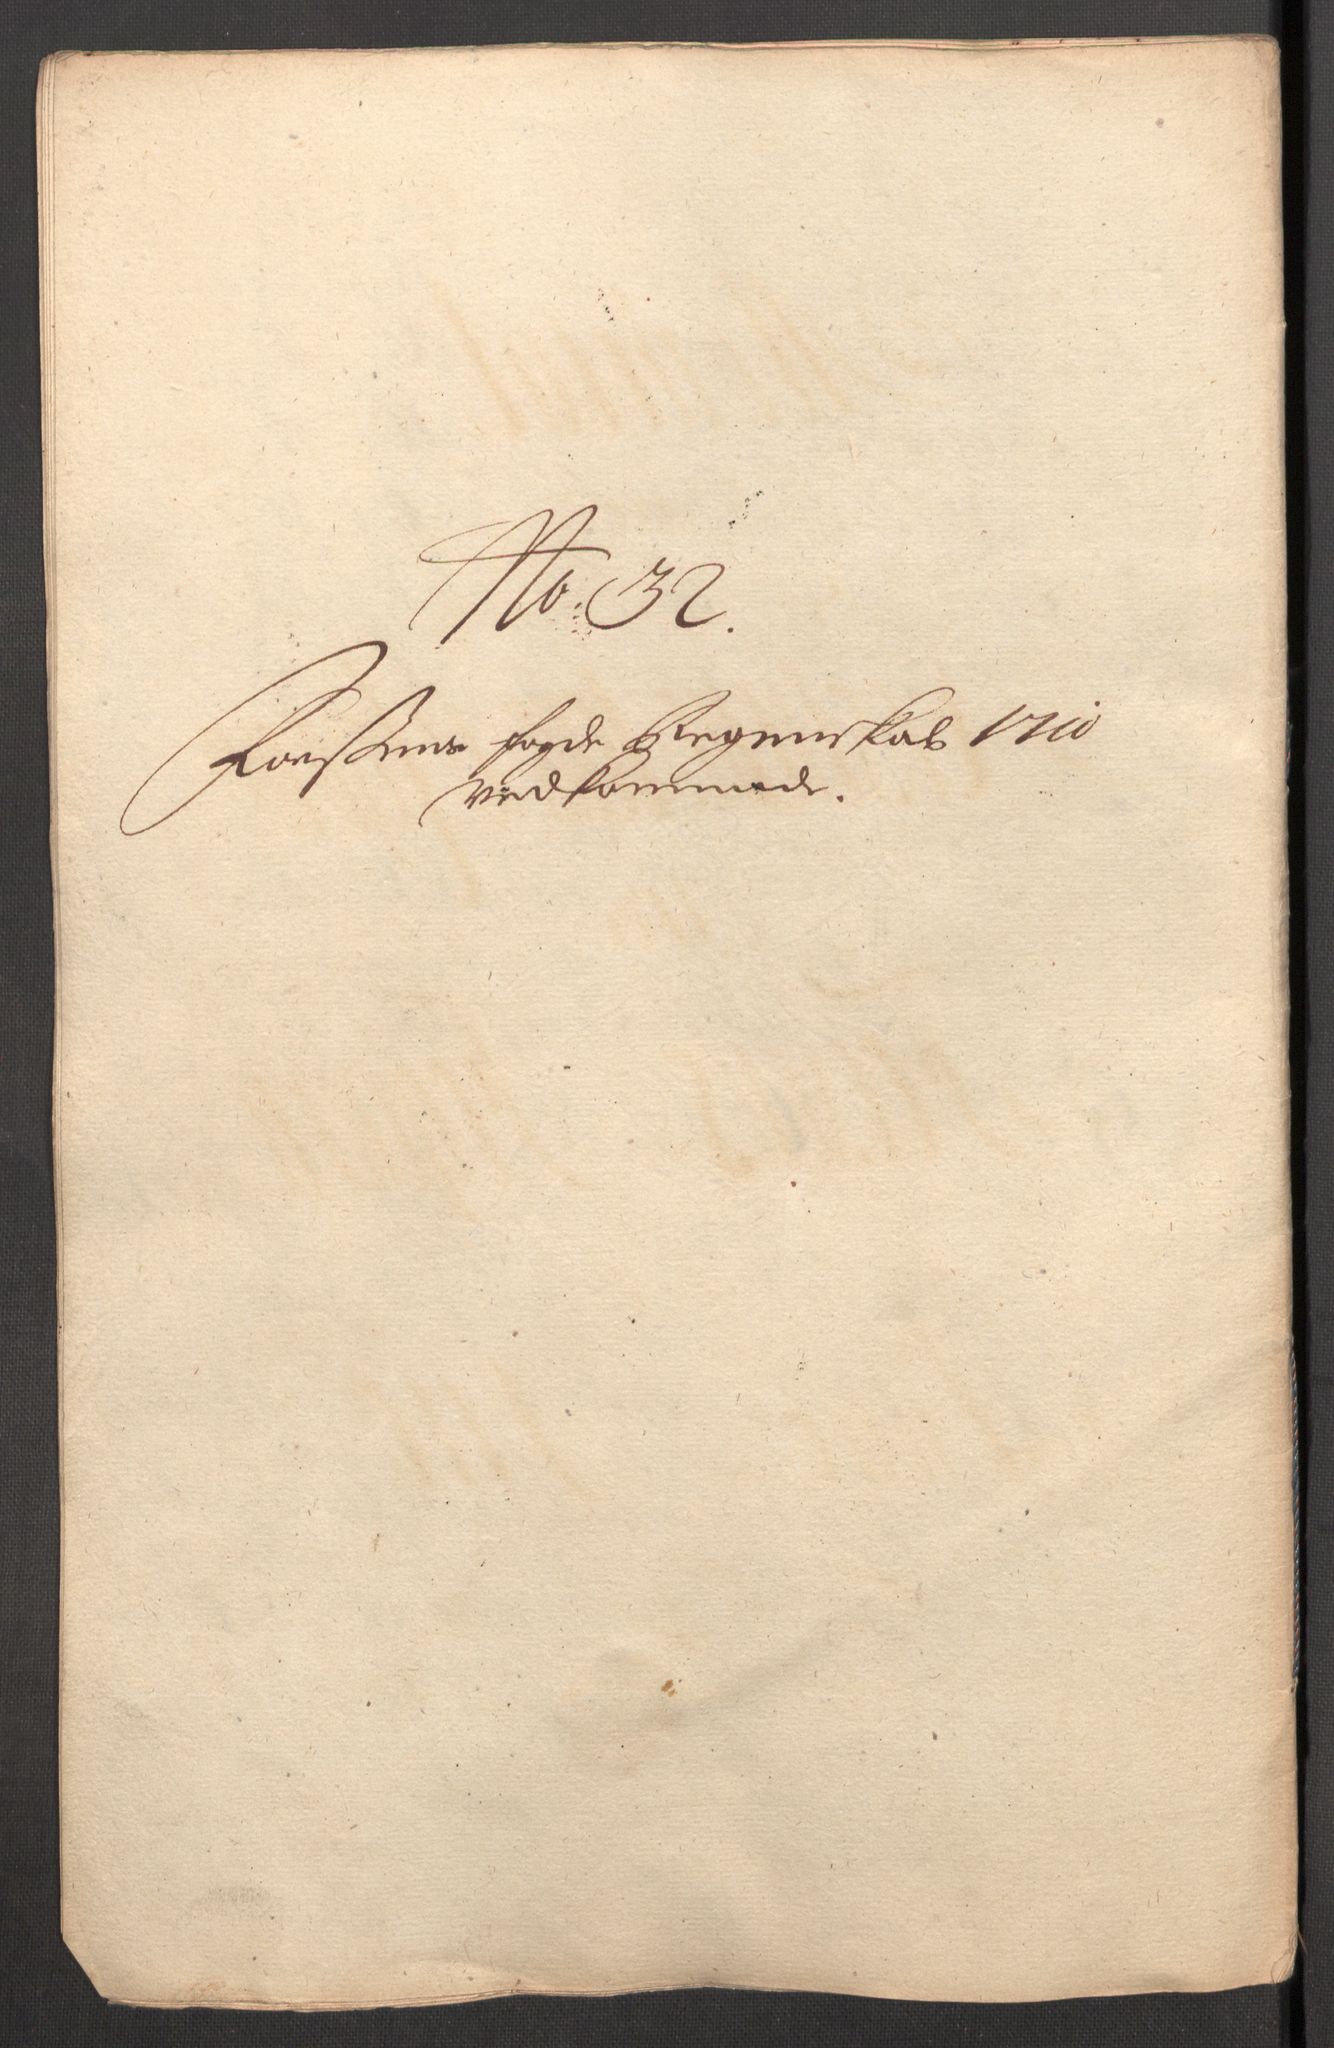 No. 32.
Foesens fogde Regenskab 1710
vedkommende.